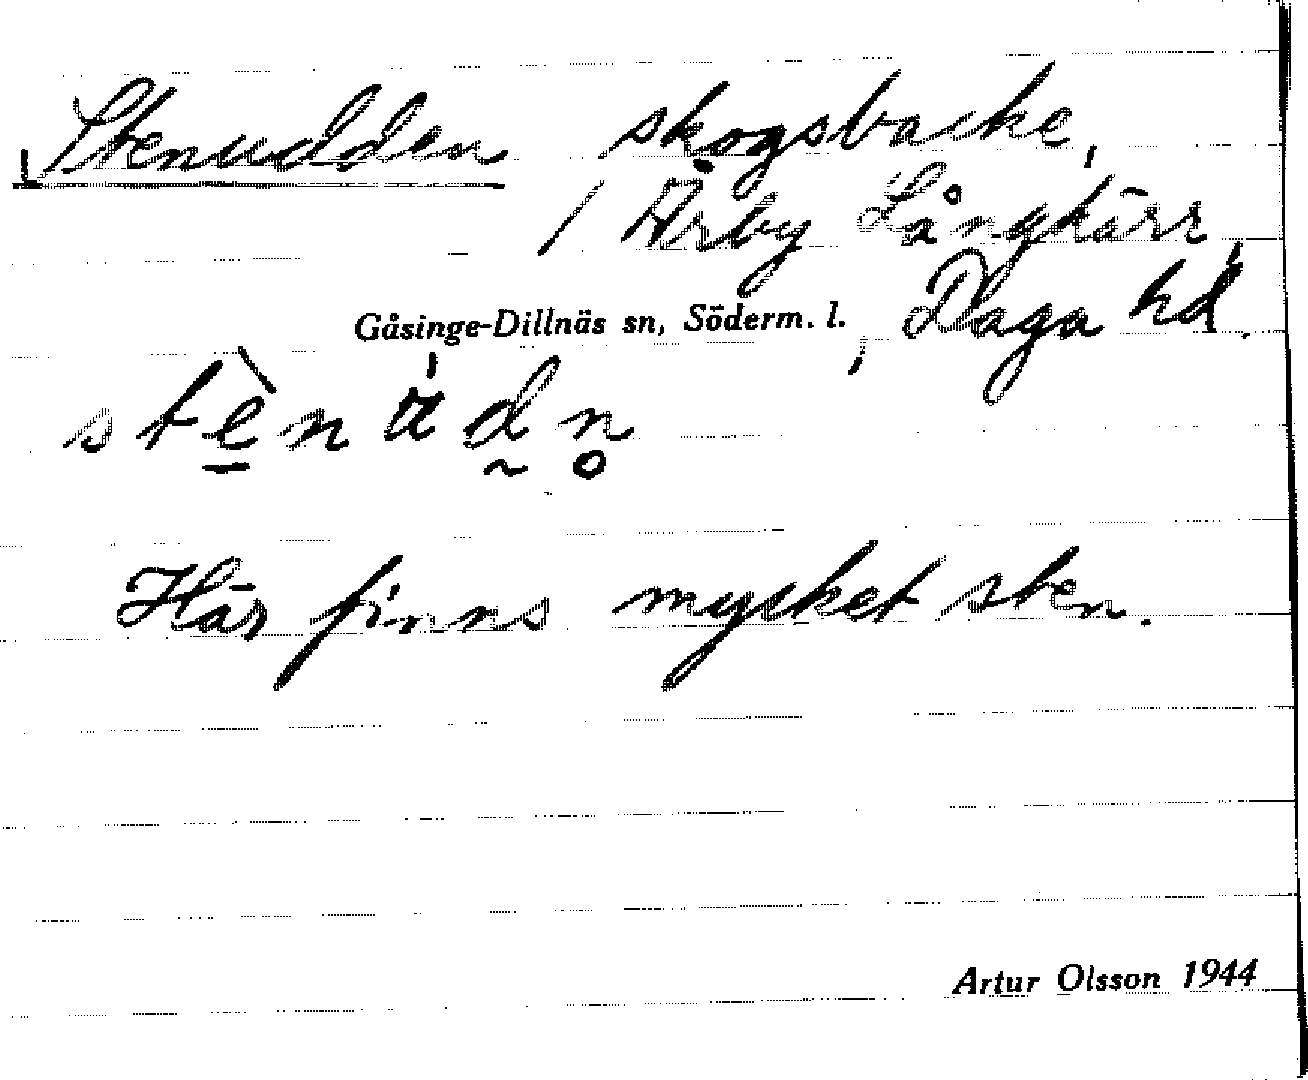 Stenudden skogsbacke,
/ Ärby Långkärr,
Gåsinge-Dillnäs sn, Söderm. l., Daga hd.
Här finns mycket sten.
Artur Olsson 1944